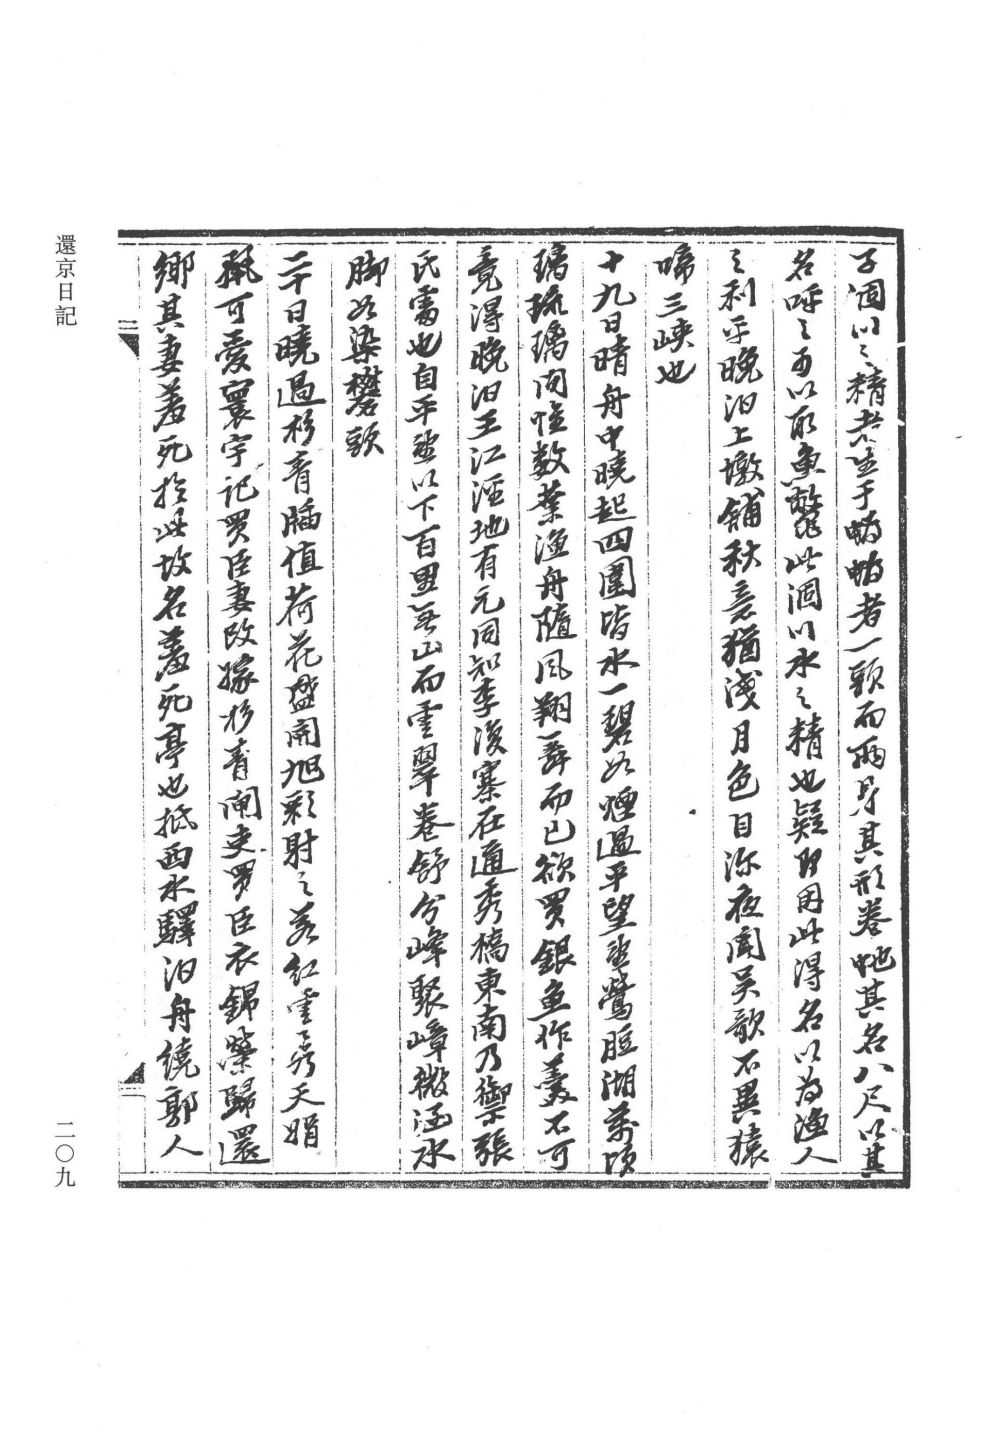 子涸川之精者生于蚴蚴者一頭而兩身其形若蛇其名八尺以其
名呼之可以取魚鱉此涸川水之精也疑即因此得名以為漁人
之利乎晚泊上墩舖秋意猶淺月色自添夜聞吳歌不異猿
啼三峽也
十九日晴舟中曉起四圍皆水一碧如煙過平望望鶯脰湖萬頃
璃琉璃間惟數葉漁舟隨風翔舞而已欲買銀魚作羹不可
竟得晚泊王江涇地有元同知李浚寨在通秀橋東南乃禦張
氏處也自平望以下百里無山而雲翠卷舒分峰聚嶂微涵水
腳如染礬頭
二十日曉過杉青牐值荷花盛開旭彩射之若紅雲裊天娟
可愛寰宇記買臣妻改嫁杉青閘吏買臣衣錦榮歸還
鄉其妻羞死於此故名羞死亭也抵西水驛泊舟繞郭人
還京日記
二〇九